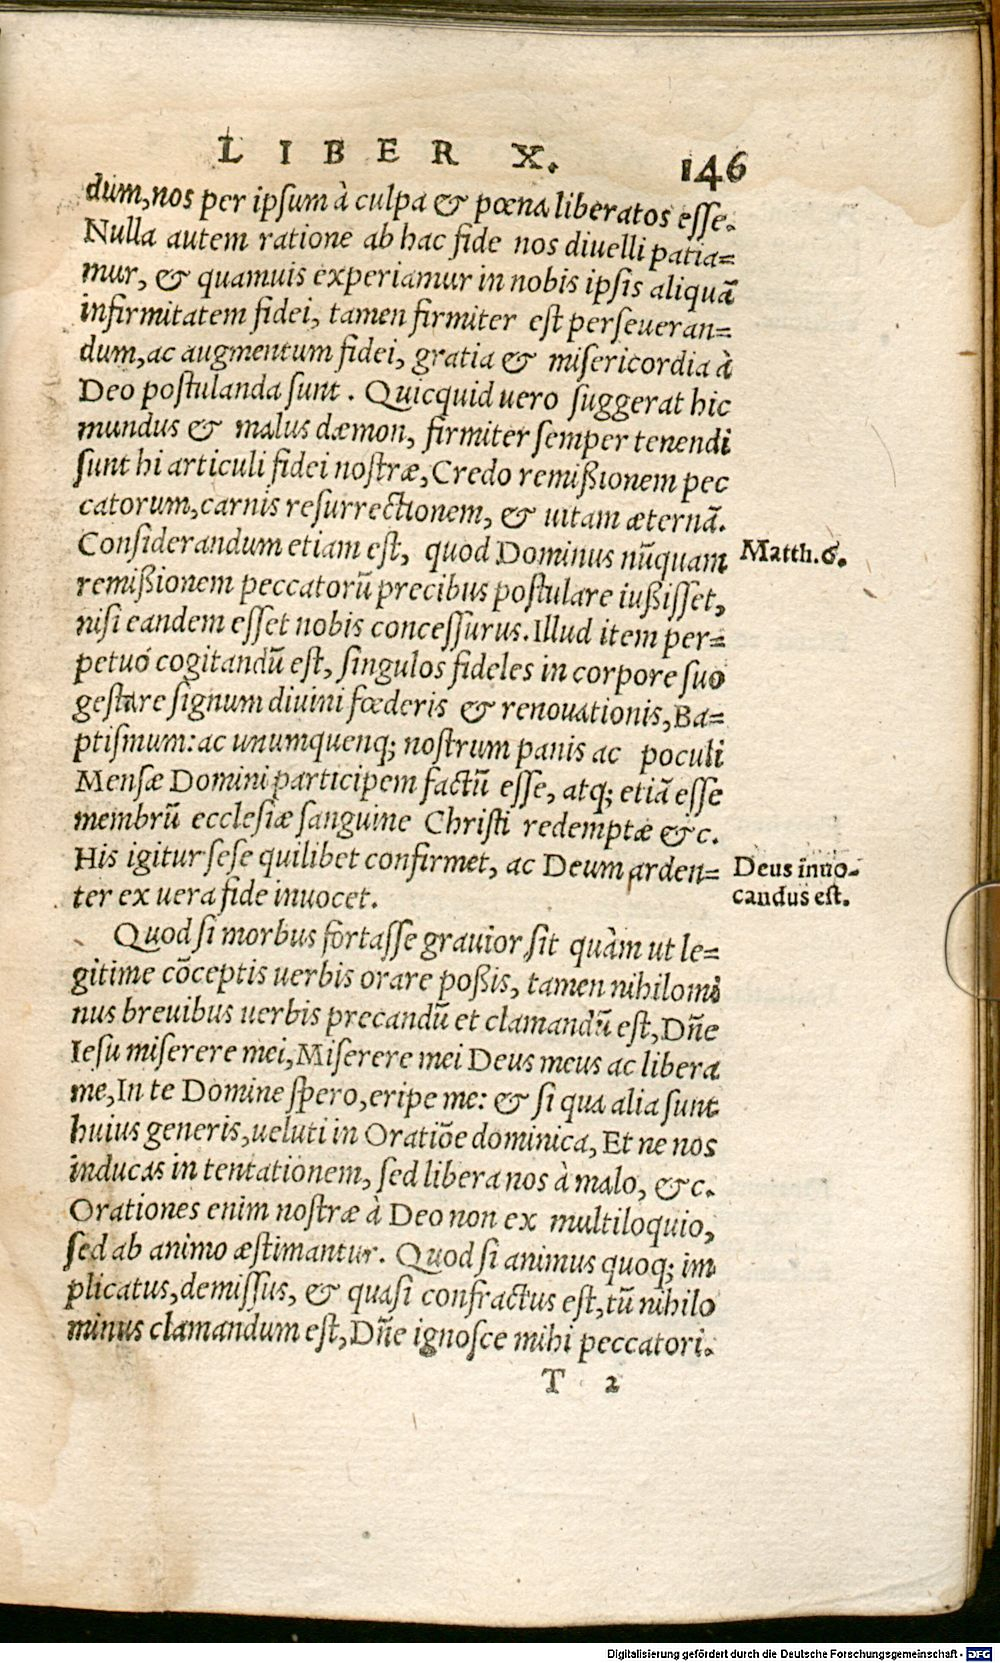 LIBER X. 146
dum, nos per ipsum à culpa & pœna liberatos esse.
Nulla autem ratione ab hac fide nos diuelli patia=
mur, & quamuis experiamur in nobis ipsis aliquā
infirmitatem fidei, tamen firmiter est perseueran=
dum, ac augmentum fidei, gratia & misericordia à
Deo postulanda sunt. Quicquid uero suggerat hic
mundus & malus dæmon, firmiter semper tenendi
sunt hi articuli fidei nostræ, Credo remißionem pec
catorum, carnis resurrectionem, & uitam æternā.
Considerandum etiam est, quod Dominus nūquam
Matth. 6.
remißionem peccatorū precibus postulare iußisset,
nisi eandem esset nobis concessurus. Illud item per=
petuó cogitandū est, singulos fideles in corpore suo
gestare signum diuini fœderis & renouationis, Ba=
ptismum: ac unumquenq; nostrum panis ac poculi
Mensæ Domini participem factū esse, atq; etiā esse
membrū ecclesiæ sanguine Christi redemptæ &c.
His igitur sese quilibet confirmet, ac Deum arden=
Deus inuo-
ter ex uera fide inuocet.
candus est.
Quod si morbus fortasse grauior sit quàm ut le=
gitime cōceptis uerbis orare poßis, tamen nihilomi
nus breuibus uerbis precandū et clamandū est, Dn̄e
Iesu miserere mei, Miserere mei Deus meus ac libera
me, In te Domine spero, eripe me: & si qua alia sunt
huius generis, ueluti in Oratiōe dominica, Et ne nos
inducas in tentationem, sed libera nos à malo, &c.
Orationes enim nostræ à Deo non ex multiloquio,
sed ab animo æstimantur. Quod si animus quoq; im
plicatus, demissus, & quasi confractus est, tū nihilo
minus clamandum est, Dn̄e ignosce mihi peccatori.
T 2
Digitalisierung gefördert durch die Deutsche Forschungsgemeinschaft - DFG